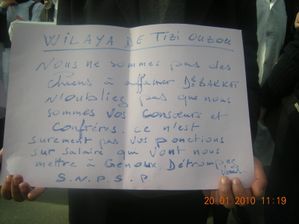 WILAYA DE TIZI OUZOU
Nous ne sommes pas des
chiens à affamer DÉBARKET
N'oubliez pas que nous
sommes vos Consœurs et
Confrères. Ce n'est
surement pas vos ponctions
sur salaire qui vont nous
mettre à Genoux. Détrompez
vous
S.N.P.S.P
20-01-2010 11:19